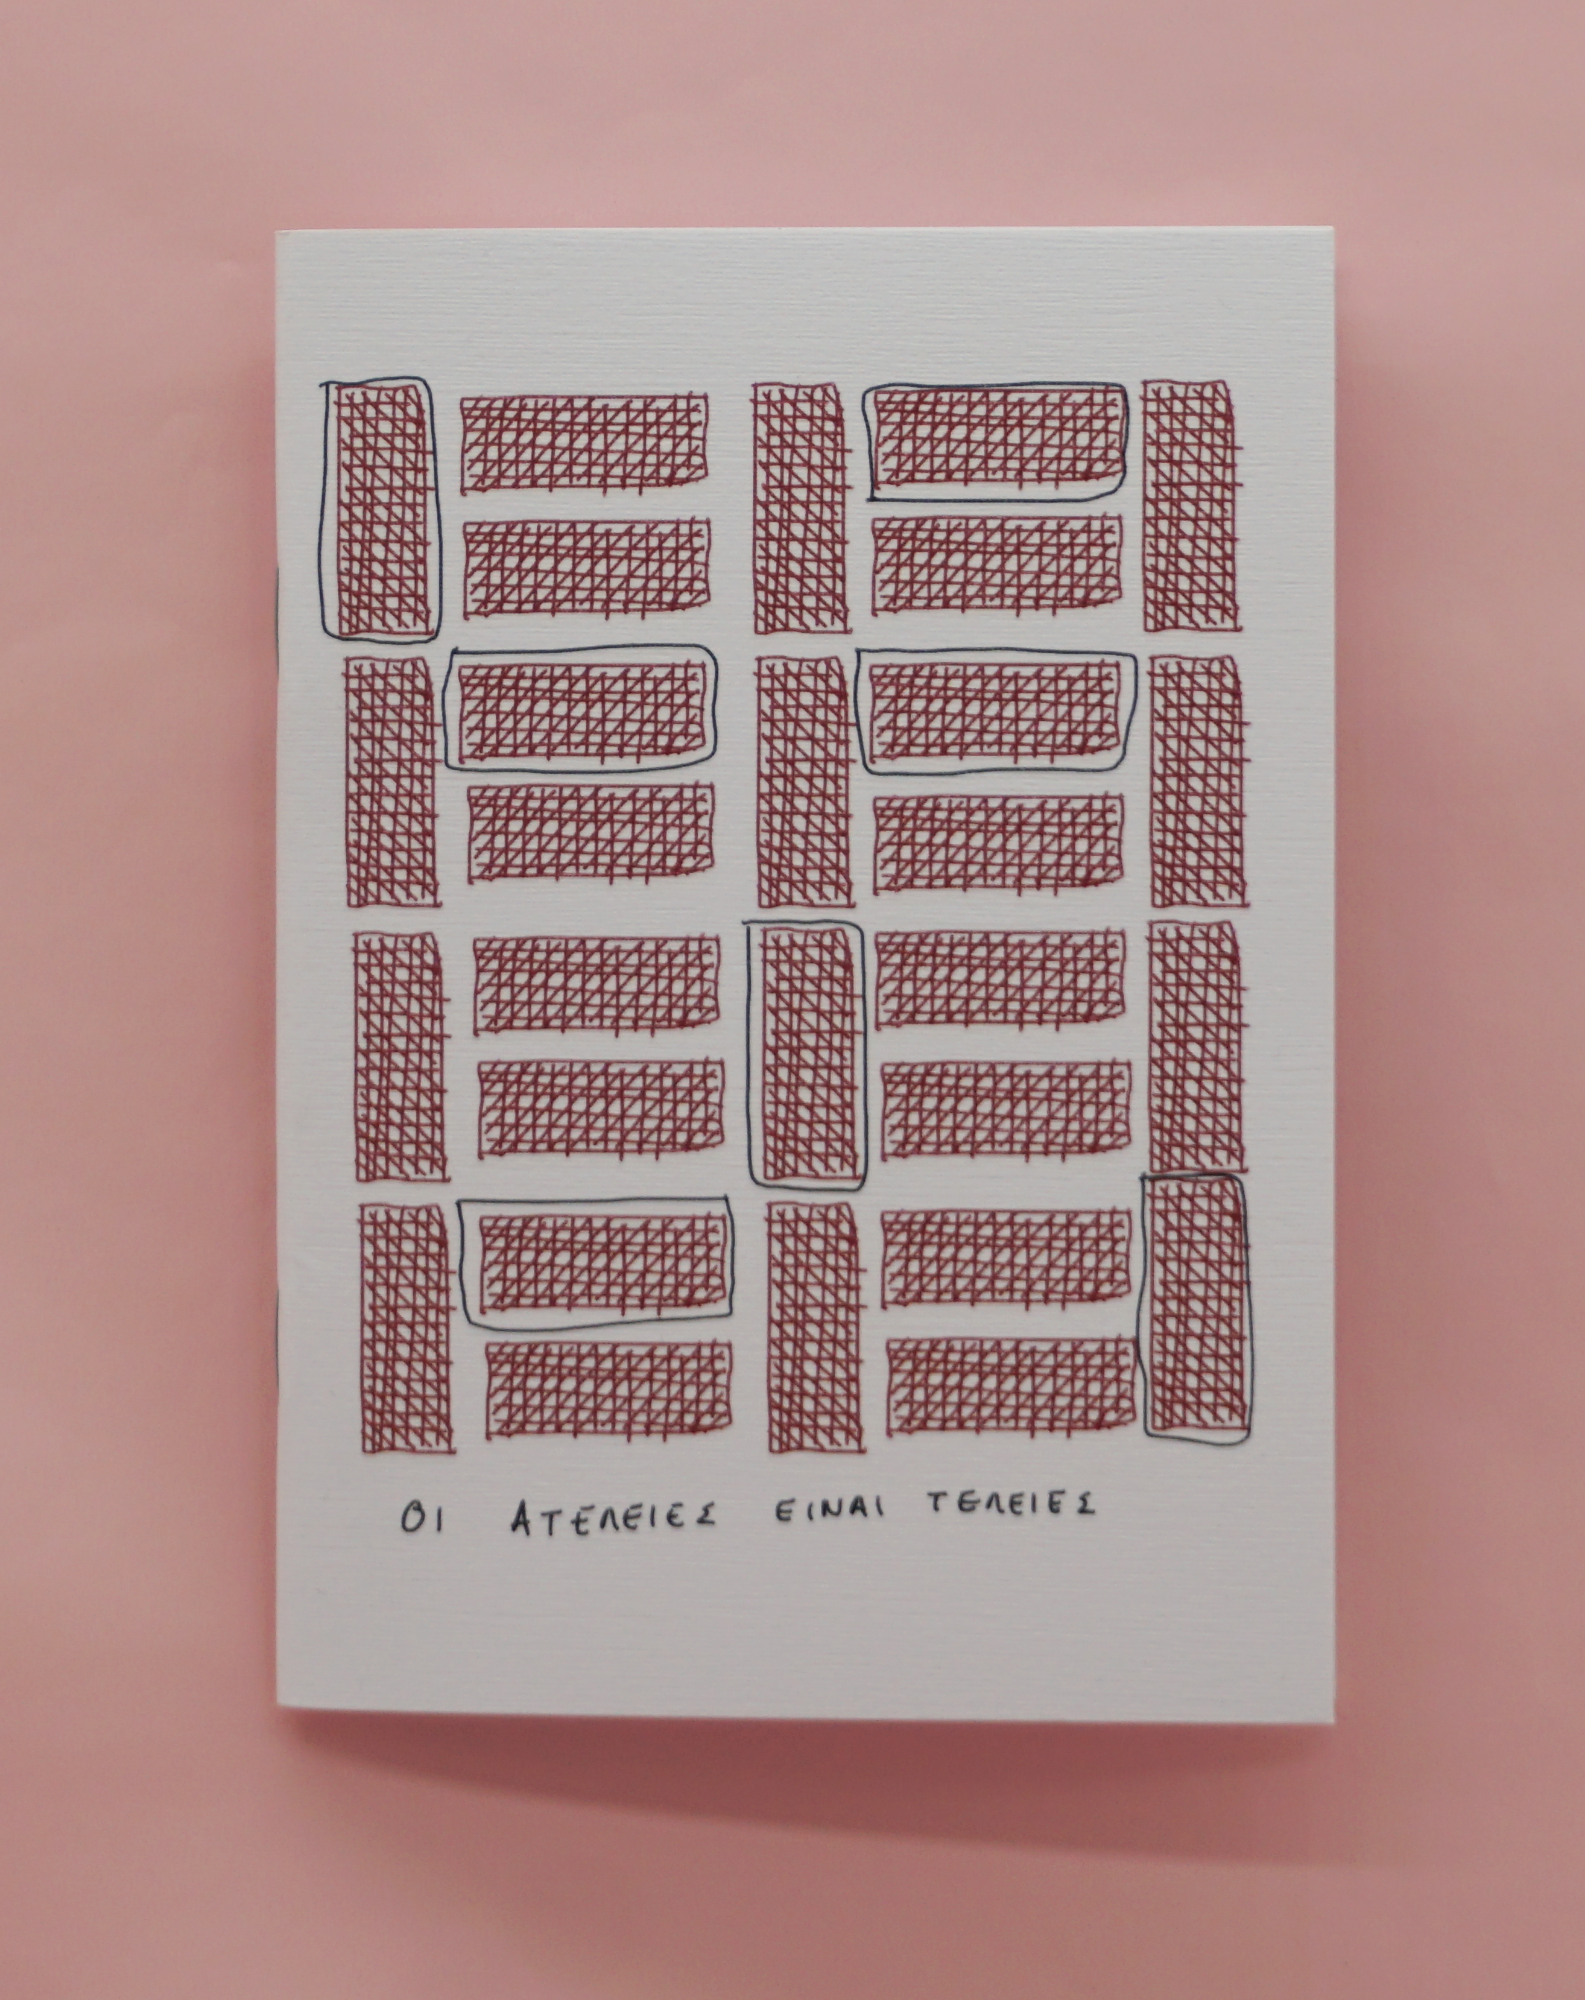 ΟΙ ΑΤΕΛΕΙΕΣ ΕΙΝΑΙ ΤΕΛΕΙΕΣ